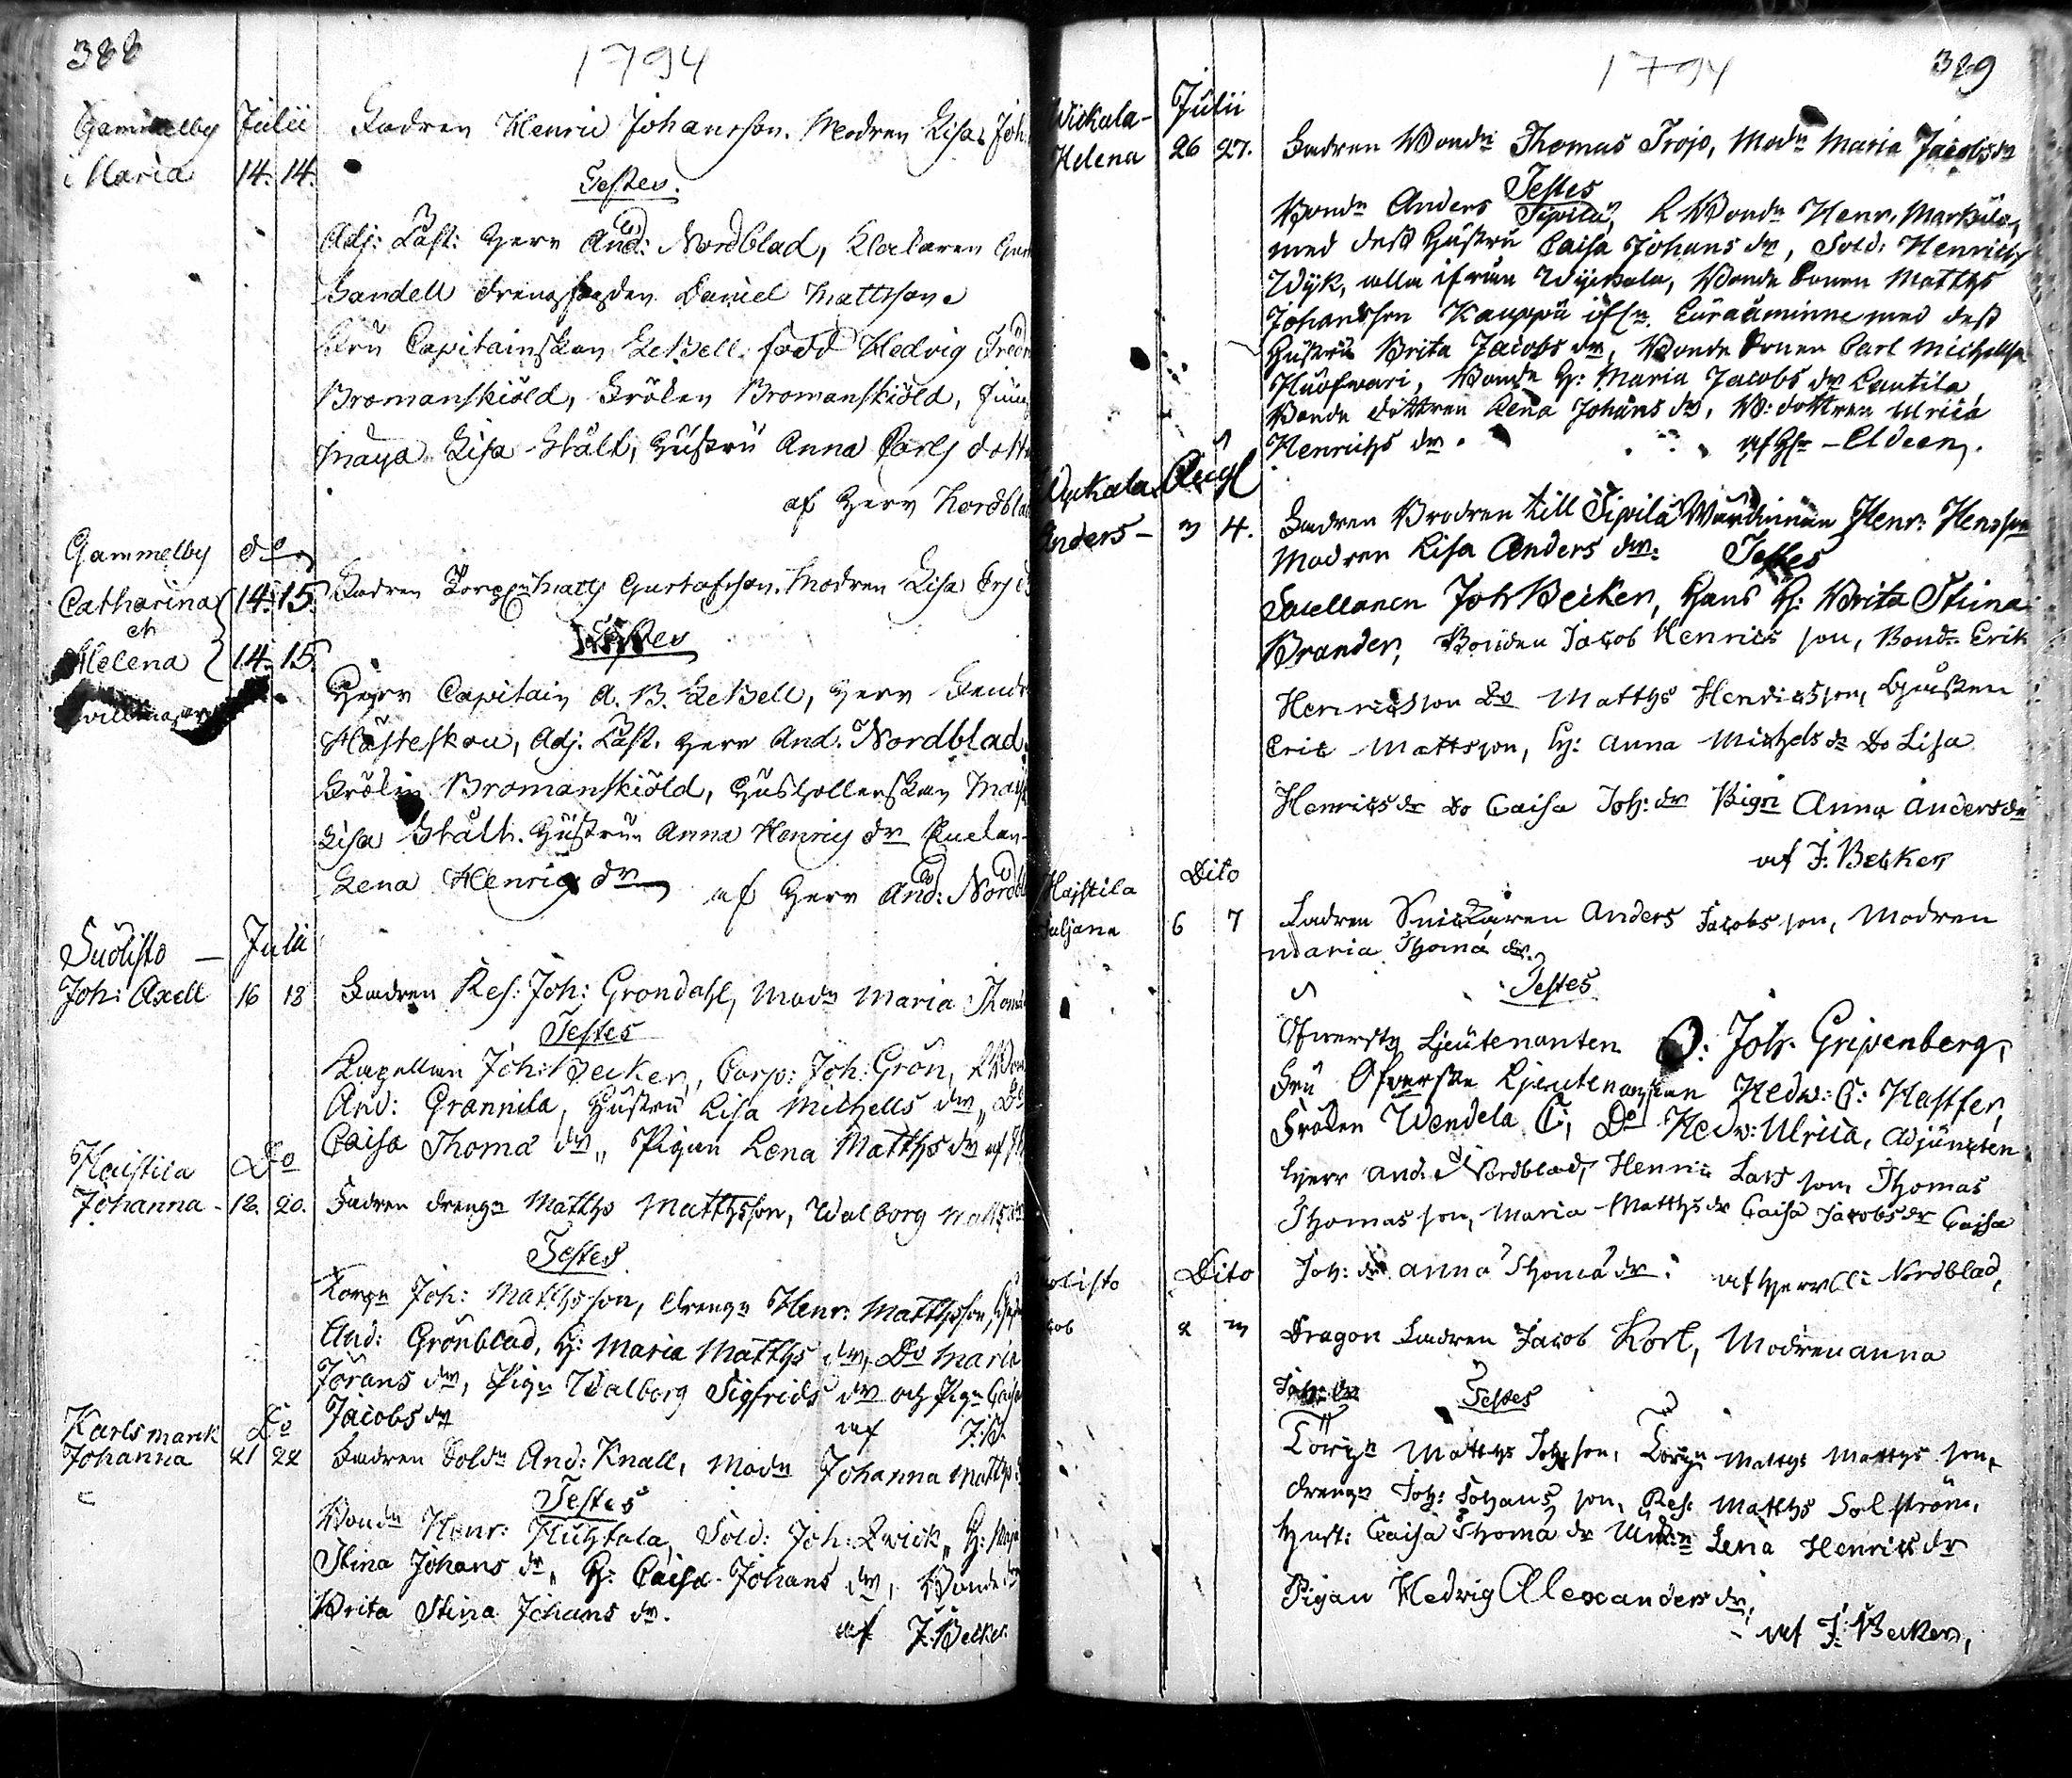 388
1794
Gammelby Julii Fadren Henric Johansson. Modren Lisa Joh
Maria 14. 14.
Testes.
Adj: Past: Herr And: Nordblad, Klockaren
Sandell drengfogden Daniel Mattsson
Fru Capitainskan LeBell född Hedvig
Bromanskiöld, Fröken Bromanskiöld,
Maya Lisa Stålt, Hustru Anna Carls dott
af Herr Nordbla
Gammelby do
Catharina 14. 15. Fadren Torpn Matts Gustafsson. Modren Lisa
et Testes
Helena 14. 15.
Herr Capitain A. B. LeBell, Herr
Hästeskou, Adj. Past. Herr And. Nordblad.
Fröken Bromanskiöld, Hushollerskan May
Lisa Stålt. Hustrun Anna Henrics dr
Lena Henrics dr af Herr And: Nordb
Suolisto — Julii
Joh: Axell 16 18 Fadren Res: Joh: Grondahl, Modn Maria Thoma
Testes
Kapellan Joh: Becker, Corp: Joh: Grön,
And: Grannila, Hustru Lisa Michells dr, Do
Caisa Thoma dr, Pigan Lena Matths dr af
Haistila Do
Johanna - 18. 20. Fadren drengn Matths Matthsson, Walborg Matths
Testes
Torpn Joh: Matthsson, drengn Henr: Matthsson,
And: Grönblad, H: Maria Matths dr, Do Maria
Jörans dr, Pign Walborg Sigfrids dr och Pign Caisa
Jacobs dr af J: B.
Karlsmark Do
Johanna 21 22 Fadren Soldn And: Knall, Modn Johanna Matths
Testes
Bondn Henr: Huhtala, Sold: Joh: Qwick, H:
Stina Johans dr, H: Caisa Johans dr, Bonde
Brita Stina Johans dr.
af J: Becker
1794
389
Wickala- Julii
Helena 26 27. Fadren Bondn Thomas Trojo, Modn Maria Jacobs dr
Testes
Bondn Anders Sipilä, RBondn Henr. Markula,
med dess Hustru Caisa Johans dr, Sold: Henrich
Wyk, alla ifrån Wyckala, Bonde Sonen Matths
Johansson Kauppu ifrn Euraåminne med dess
Hustru Brita Jacobs dr, Bonde Sonen Carl Michellss
Huofwari, Bondn H: Maria Jacobs dr Lautila
Bonde dottren Lena Johans dr, B: dottren Ulrica
Henrichs dr. af Hr Eldeen.
Wyckala Aug
Anders - 3 4. Fadren Brodren till Sipilä Wärdinnan Henr: Henrsson
Modren Lisa Anders dr. Testes
Sacellanen Joh Becker, Hans H: Brita Stina
Brander, Bonden Jacob Henrics son, Bondn Erik
Henricsson Do Matths Henricsson,
Eric Mattsson, H: Anna Michels dr Do Lisa
Henrics dr Do Caisa Joh: dr Pign Anna Anders dr
af J. Becker
Haistila Dito
Juljana 6 7 Fadren Snickaren Anders Jacobs son, Modren
Maria Thoma dr.
Testes
Öfwerste Lieutenanten O: Joh: Gripenberg,
Fru Öfwerste Lieutenanskan Hedw: C: Hastfer,
Fröken Wendela C; Do Hedw: Ulrica, Adjuncten
Herr And: Nordblad, Henric Lars son Thomas
Thomas son, Maria Matths dr Caisa Jacobs dr Caisa
Joh: dr Anna Thoma dr. af Herr Nordblad,
olisto Dito
cob 2 3 Dragon Fadren Jacob Kort, Modren Anna
Joh: dr Testes
Torpn Matths Joh: son, Torpn Matths Matths son,
drengn Joh: Johans son, Res: Matths Solström,
Hust: Caisa Thoma dr Lena Henrics dr
Pigan Hedvig Alexanders dr,
af J: Becker,